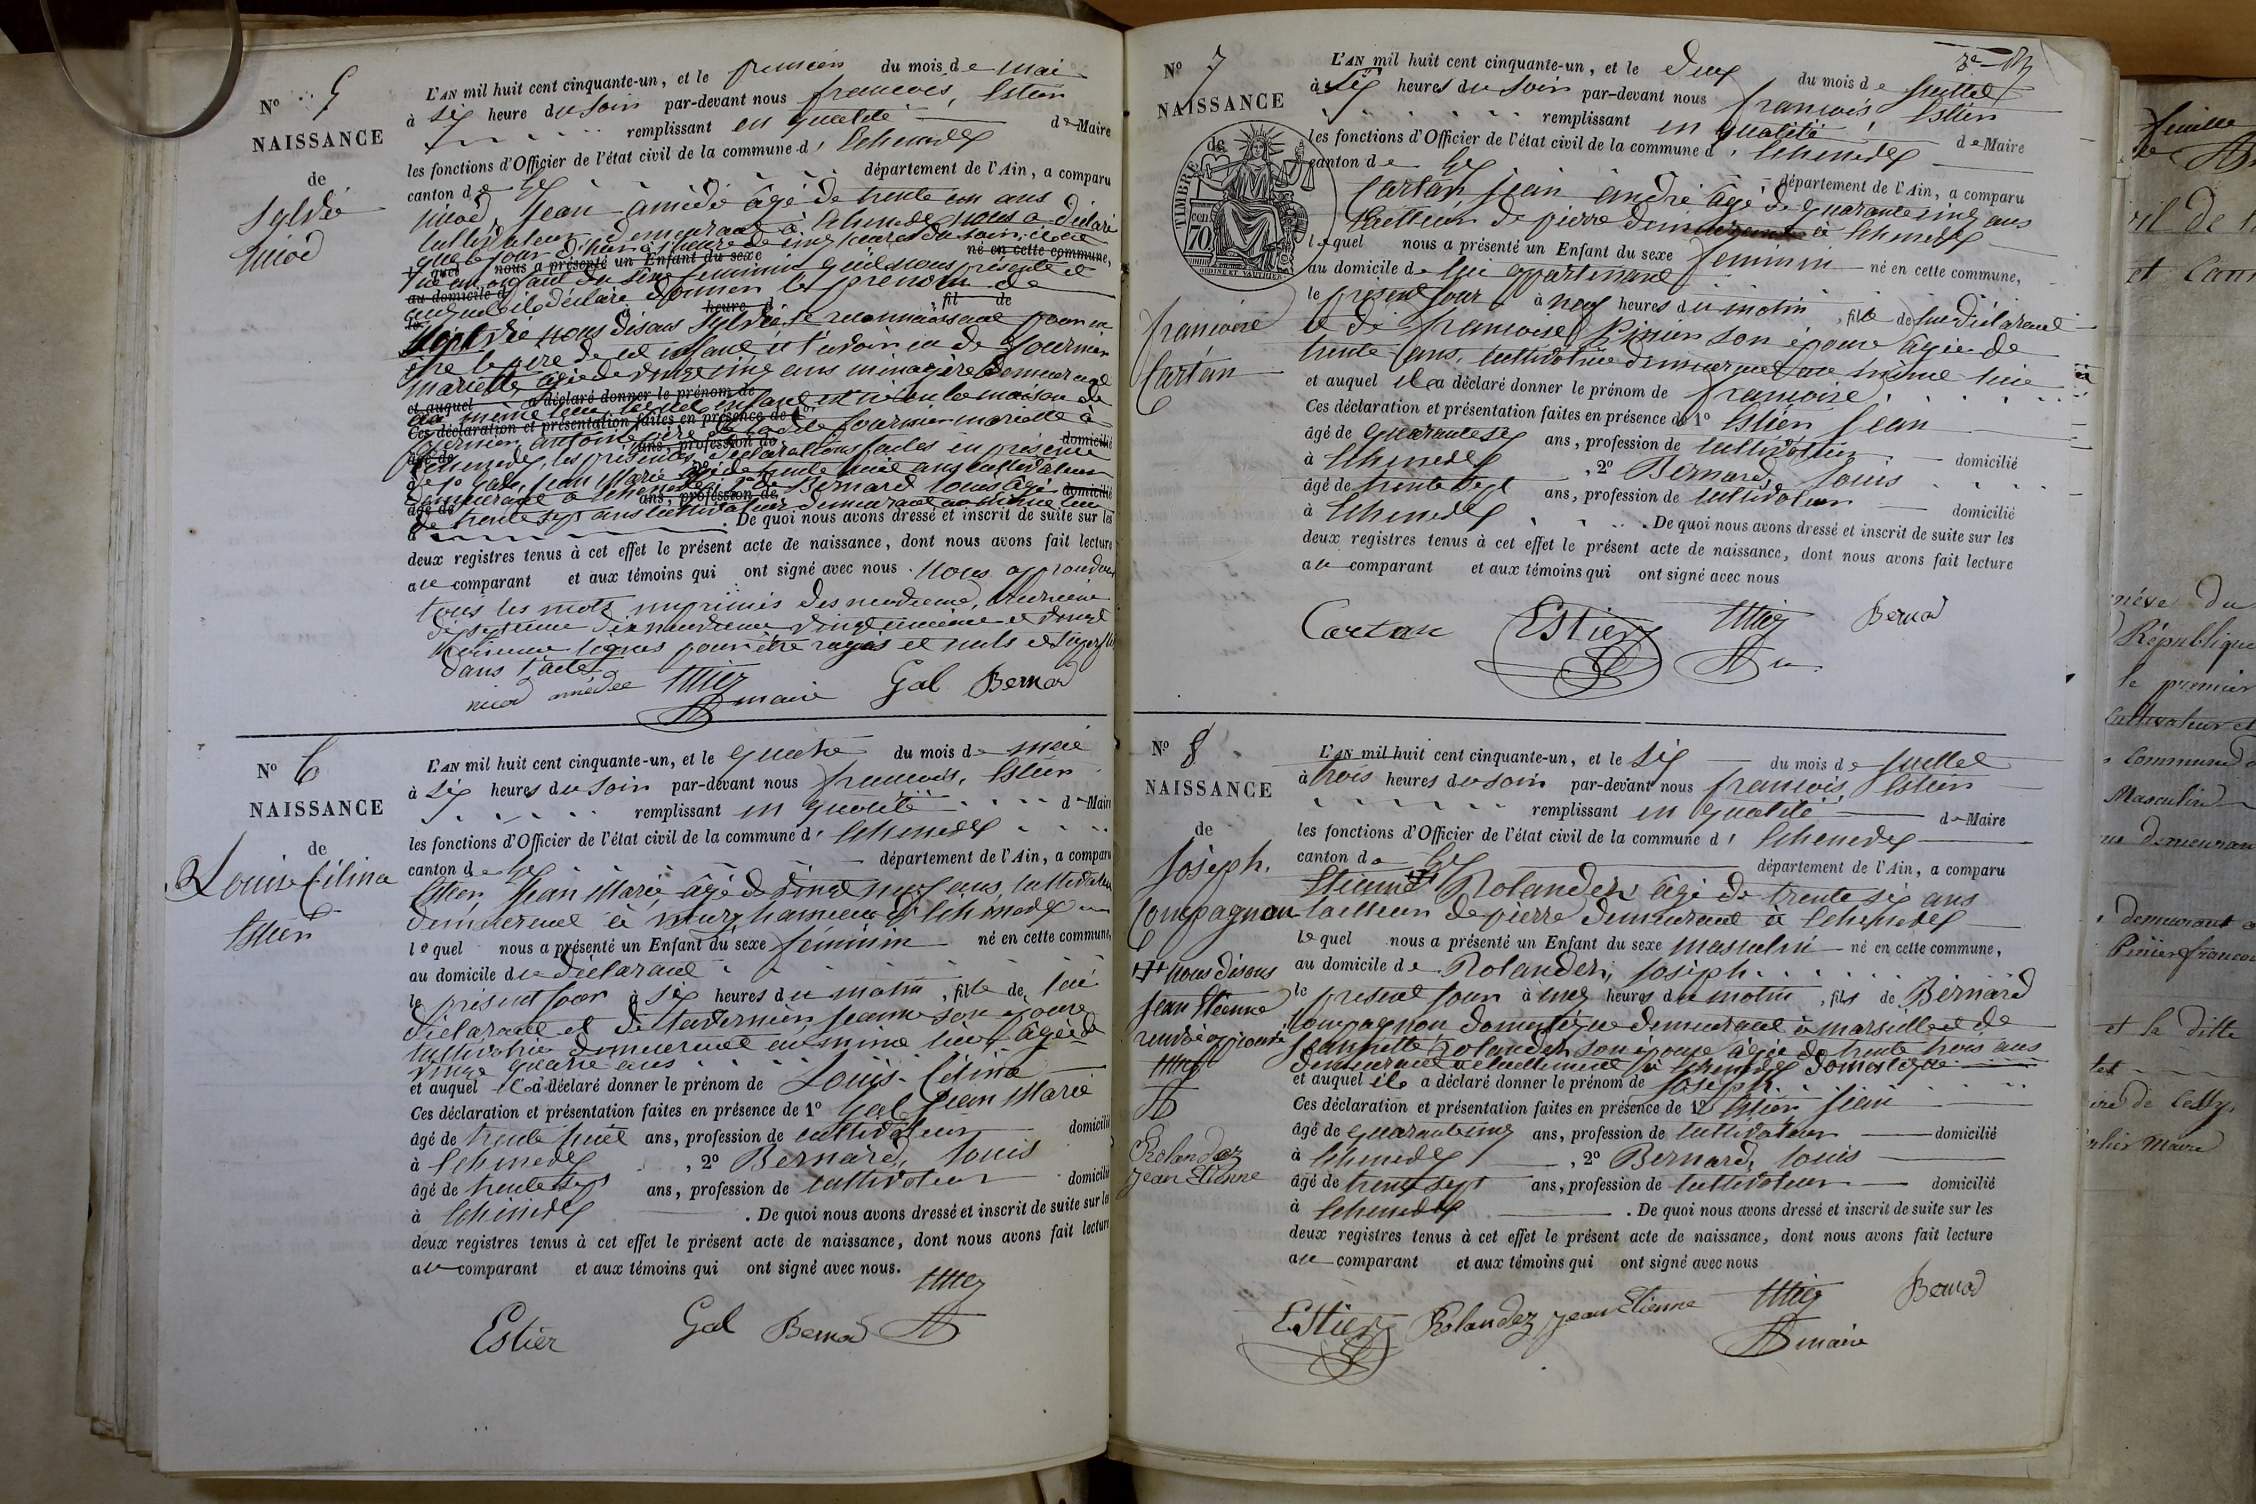 N° 5
NAISSANCE
de
Sylvie
nicod
L'AN mil huit cent cinquante-un, et le premier du mois de mai
à six heure du soir par-devant nous françois, Estier
remplissant en qualité de Maire
les fonctions d'Officier de l'état civil de la commune d' Echenevex
canton de Gex département de l'Ain, a comparu
nicod, Jean amédé âgé de trente un ans
cultivateur demeurant à Echenevex nous a déclaré
que le jour d'hier à l'heure de cinq heures du soir, il est
lequel nous a présenté un Enfant du sexe né en cette commune,
né un enfant du sexe feminin qu'il nous présente et
au domicile d
auquel il déclare donner le prenom de
le heure d , fil de
Sylvie nous disons Sylvie, se reconnaissant pour
être le père de cet enfant et l'avoir eu de fournier
mariette âgée de vingt cinq ans ménagère demeurant
et auquel a déclaré donner le prénom de
au même lieu le dit enfant est né en la maison de
Ces déclaration et présentation faites en présence de 1°
fournier antoine père de la dite fournier mariette à
âgé de ans, profession de domicilié
Echenevex, les présentes déclarations faites en présence
de 1° Gal, Jean Marie âgé de trente huit ans cultivateur
demeurant à Echenevex, 2° de Bernard Louis âgé
âgé de ans, profession de domicilié
de trente sept ans cultivateur demeurant au même lieu
à . De quoi nous avons dressé et inscrit de suite sur les
deux registres tenus à cet effet le présent acte de naissance, dont nous avons fait lecture
au comparant et aux témoins qui ont signé avec nous. nous approuvons
tous les mots imprimés des neuvieme, onzieme
dix septieme dix neuvieme vingt unieme et vingt
lignes pour être rayés et nuls et
dans l'acte
nicod amédée Estier maire Gal Bernard
N° 6
NAISSANCE
de
Louise Célina
Estier
L'AN mil huit cent cinquante-un, et le quatre du mois de mai
à six heures du soir par-devant nous françois, Estier
remplissant en qualité de Maire
les fonctions d'Officier de l'état civil de la commune d' Echenevex
canton de Gex département de l'Ain, a comparu
Estier, Jean Marie, âgé de vingt neuf ans, cultivateur
demeurant à mury hameau d'Echenevex
lequel nous a présenté un Enfant du sexe féminin né en cette commune,
au domicile du déclarant
le présent jour à six heures du matin, fille de lui
déclarant et de tavernier jeanne son épouse
cultivatrice demeurant au même lieu âgée de
vingt quatre ans
et auquel il a déclaré donner le prénom de Louise Célina
Ces déclaration et présentation faites en présence de 1° Gal Jean Marie
âgé de trente huit ans, profession de cultivateur domicilié
à Echenevex , 2° Bernard, Louis
âgé de trente sept ans, profession de cultivateur domicilié
à Echenevex . De quoi nous avons dressé et inscrit de suite sur les
deux registres tenus à cet effet le présent acte de naissance, dont nous avons fait lecture
au comparant et aux témoins qui ont signé avec nous.
Estier Gal Bernard Estier
N° 7
NAISSANCE
de
TIMBRE
cen 70
françoise
Cartan
L'AN mil huit cent cinquante-un, et le deux du mois de Juillet
à six heures du soir par-devant nous françois, Estier
remplissant en qualité de Maire
les fonctions d'Officier de l'état civil de la commune d' Echenevex
canton de Gex département de l'Ain, a comparu
Cartan, Jean andré âgé de quarante cinq ans
tailleur de pierre demeurant à Echenevex
lequel nous a présenté un Enfant du sexe féminin né en cette commune,
au domicile de lui appartenant
le présent jour à neuf heures du matin, fille de lui déclarant
et de françoise Pinier son épouse âgée de
trente ans, cultivatrice demeurant au même lieu
et auquel il a déclaré donner le prénom de françoise
Ces déclaration et présentation faites en présence de 1° Estier Jean
âgé de quarante six ans, profession de cultivateur domicilié
à Echenevex , 2° Bernard, Louis
âgé de trente sept ans, profession de cultivateur domicilié
à Echenevex . De quoi nous avons dressé et inscrit de suite sur les
deux registres tenus à cet effet le présent acte de naissance, dont nous avons fait lecture
au comparant et aux témoins qui ont signé avec nous
Cartan Estier Estier Bernard
N° 8
NAISSANCE
de
Joseph.
Compagnon
nous disons
Jean Etienne
renvoi approuvé
Rolandez
Jean Etienne
L'AN mil huit cent cinquante-un, et le six du mois de Juillet
à trois heures du soir par-devant nous françois, Estier
remplissant en qualité de Maire
les fonctions d'Officier de l'état civil de la commune d' Echenevex
canton de Gex département de l'Ain, a comparu
Etienne Rolandez âgé de trente six ans
tailleur de pierre demeurant à Echenevex
lequel nous a présenté un Enfant du sexe masculin né en cette commune,
au domicile de Rolandez, Joseph
le présent jour à cinq heures du matin, fils de Bernard
Compagnon domestique demeurant à marseille et de
Jeannette Rolandez son épouse âgée de trente trois ans
demeurant actuellement à Echenevex domestique
et auquel il a déclaré donner le prénom de Joseph
Ces déclaration et présentation faites en présence de 1° Estier Jean
âgé de quarante cinq ans, profession de cultivateur domicilié
à Echenevex , 2° Bernard, Louis
âgé de trente sept ans, profession de cultivateur domicilié
à Echenevex . De quoi nous avons dressé et inscrit de suite sur les
deux registres tenus à cet effet le présent acte de naissance, dont nous avons fait lecture
au comparant et aux témoins qui ont signé avec nous
Estier Rolandez jean Etienne Estier maire Bernard
feuille
et
du
République
le premier
cultivateur et
commune
Masculin
demeurant
Pinier françois
et la dite
maire de Cessy
Maire